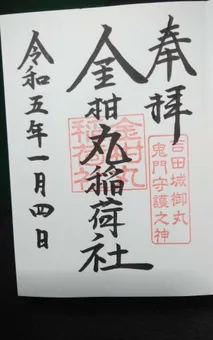 奉拝
吉田城御金丸
鬼門守護之神
金柑丸稲荷社
金柑丸
稲荷社
令和五年一月四日